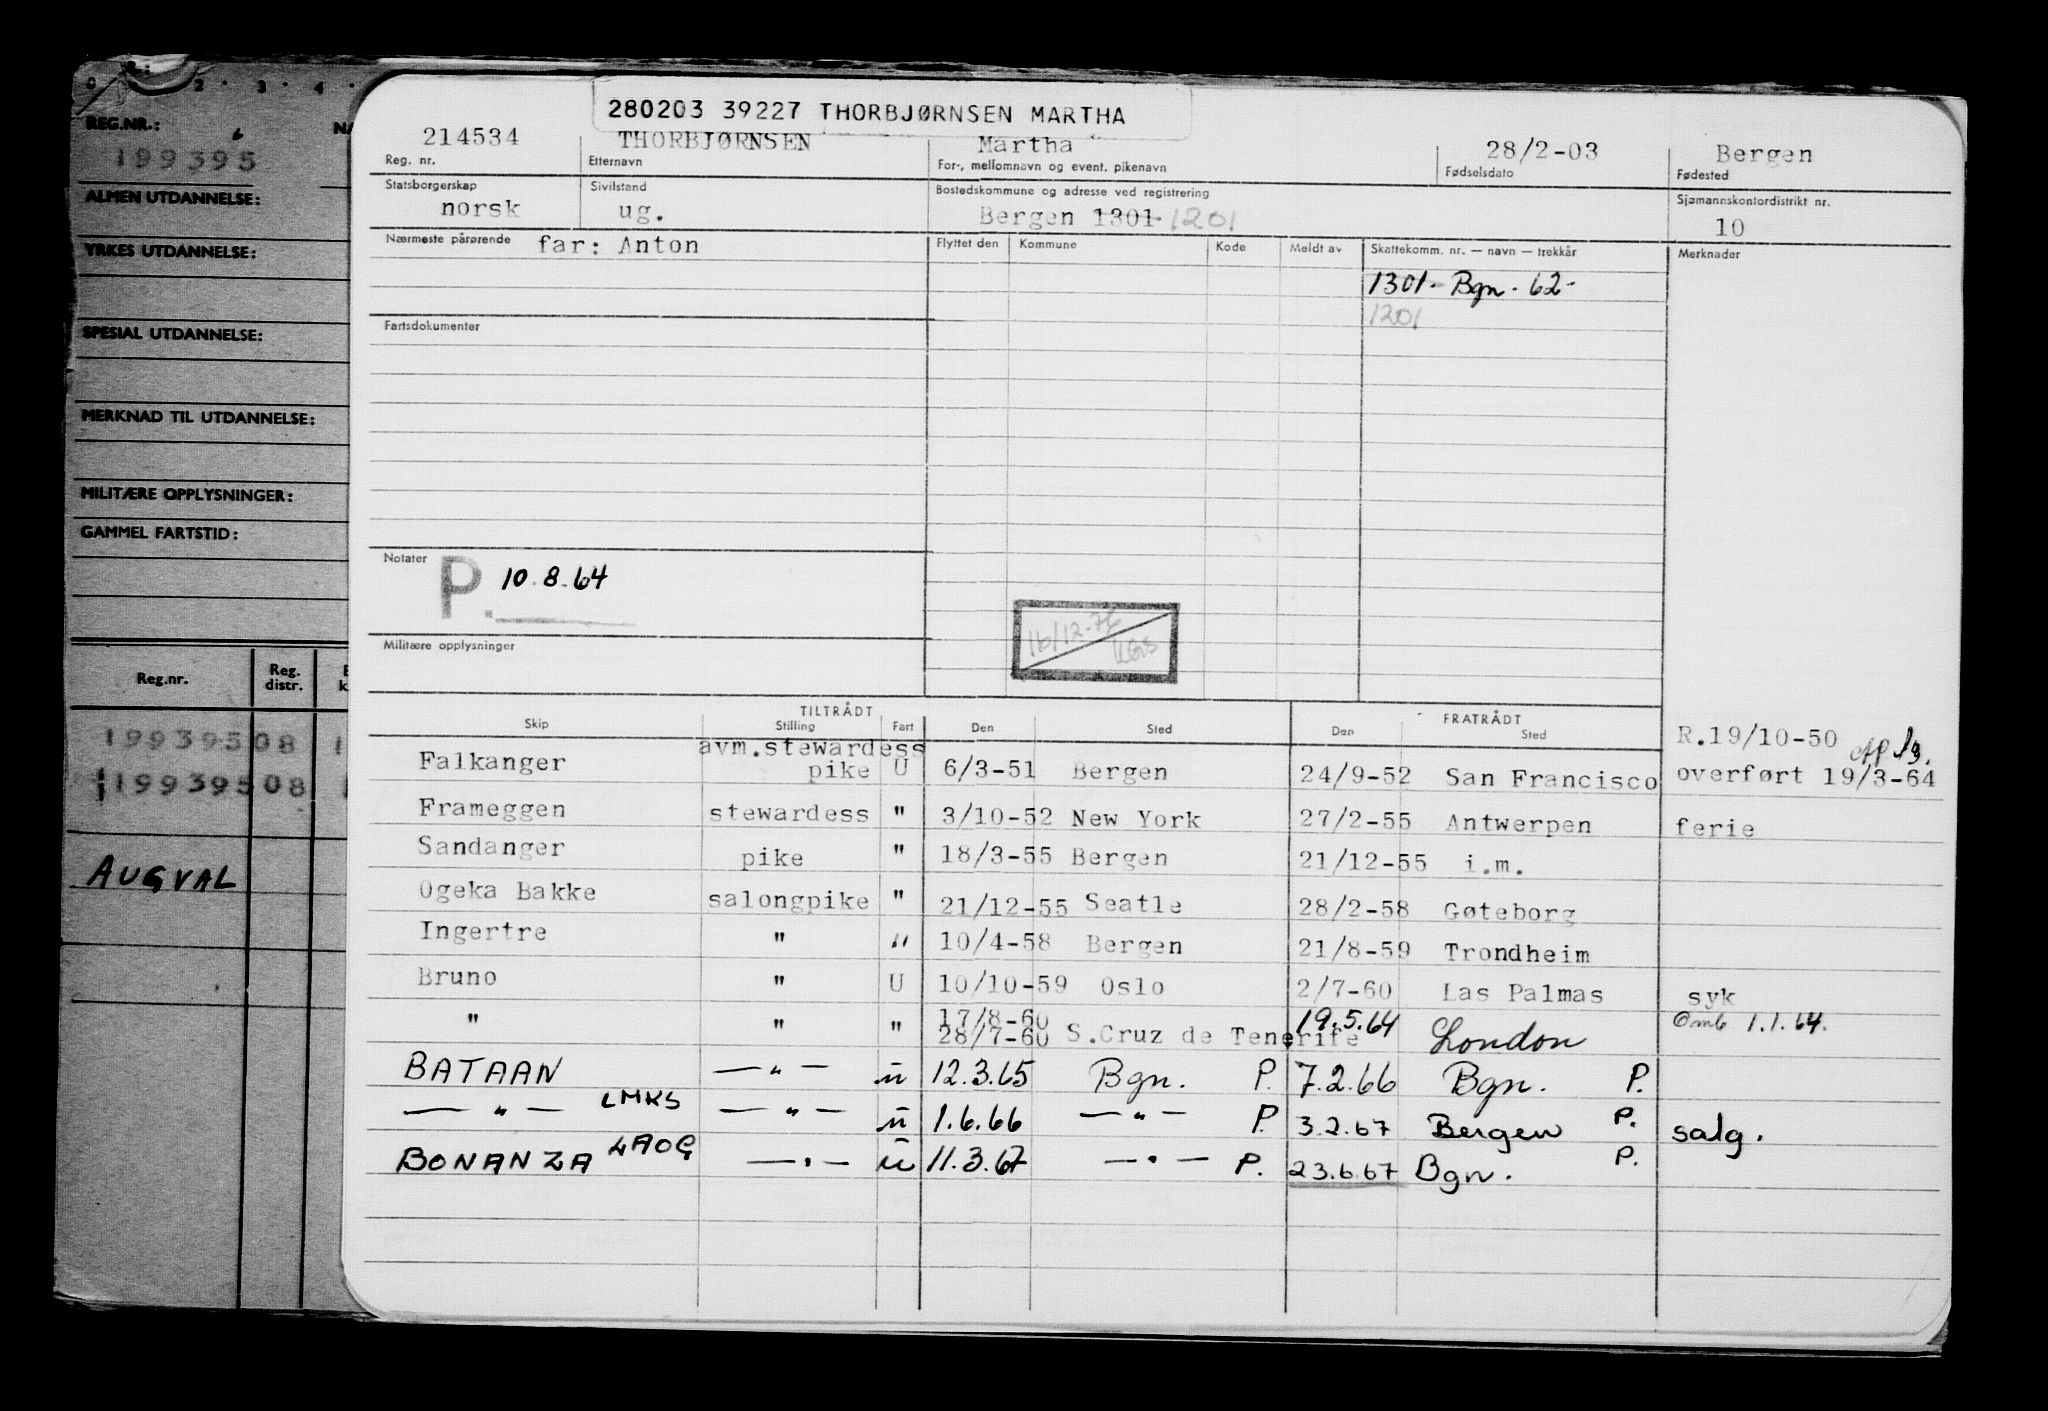 0 · 2 · 3 · 4 ·
REG.NR.:
199395
ALMEN UTDANNELSE:
YRKES UTDANNELSE:
SPESIAL UTDANNELSE:
MERKNAD TIL UTDANNELSE:
MILITÆRE OPPLYSNINGER:
GAMMEL FARTSTID:
Reg.nr. Reg. distr.
199395 08 1
199395 08
AUGVAL
280203 39227 THORBJØRNSEN MARTHA
214534 THORBJØRNSEN Martha 28/2-03 Bergen
Reg. nr. Etternavn For-, mellomnavn og event. pikenavn Fødselsdato Fødested
Statsborgerskap Sivilstand Bostedskommune og adresse ved registrering Sjømannskontordistrikt nr.
norsk ug. Bergen 1301 1201 10
Nærmeste pårørende far: Anton Flyttet den Kommune Kode Meldt av Skattekomm. nr. — navn — trekkår Merknader
1301- Bgn. 62-
1201
Fartsdokumenter
Notater
P. 10.8.64
16/12-76
Militære opplysninger
TILTRÅDT FRATRÅDT
Skip Stilling Fart Den Sted Den Sted
R.19/10-50
Falkanger avm.stewardess pike U 6/3-51 Bergen 24/9-52 San Francisco overført 19/3-64
Frameggen stewardess " 3/10-52 New York 27/2-55 Antwerpen ferie
Sandanger pike " 18/3-55 Bergen 21/12-55 i.m.
Ogeka Bakke salongpike " 21/12-55 Seatle 28/2-58 Gøteborg
Ingertre " " 10/4-58 Bergen 21/8-59 Trondheim
Bruno " U 10/10-59 Oslo 2/7-60 Las Palmas syk
" " " 17/8-60 19.5.64 London Omb 1.1.64.
28/7-60 S.Cruz de Tenerife
BATAAN — " — u 12.3.65 Bgn. P. 7.2.66 Bgn. P.
— " — LMKS — " — u 1.6.66 — " — P. 3.2.67 Bergen P. salg.
BONANZA LAOG — " — u 11.3.67 — " — P. 23.6.67 Bgn. P.